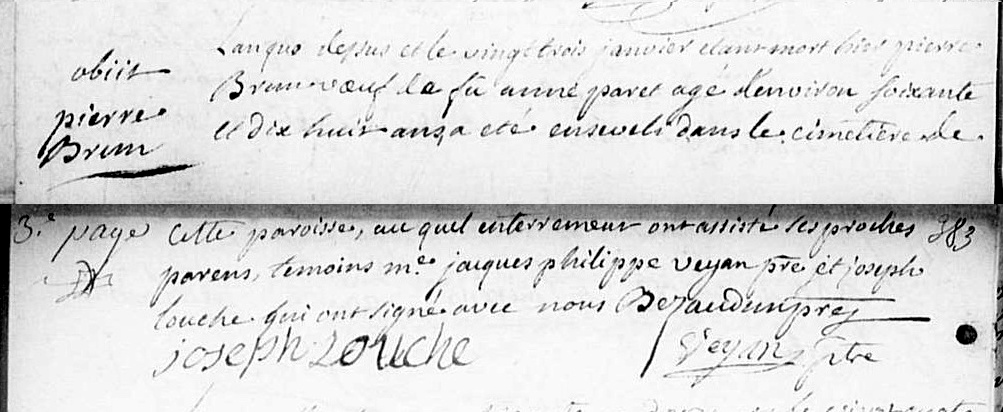 Lanque dessus et le vingt trois janvier etant mort hier pierre
obiit
Brun vœuf de fû anne paret agé d'environ soixante
pierre
Brun
et dix huit ans, a eté enseveli dans le cimetière de
3.e page
cette paroisse, au quel enterrement ont assisté ses proches
383
parens, temoins m.e jacques philippe veyan pre et joseph
louche qui ont signé avec nous Bezaudun pre
joseph Louche
Veyan ptre